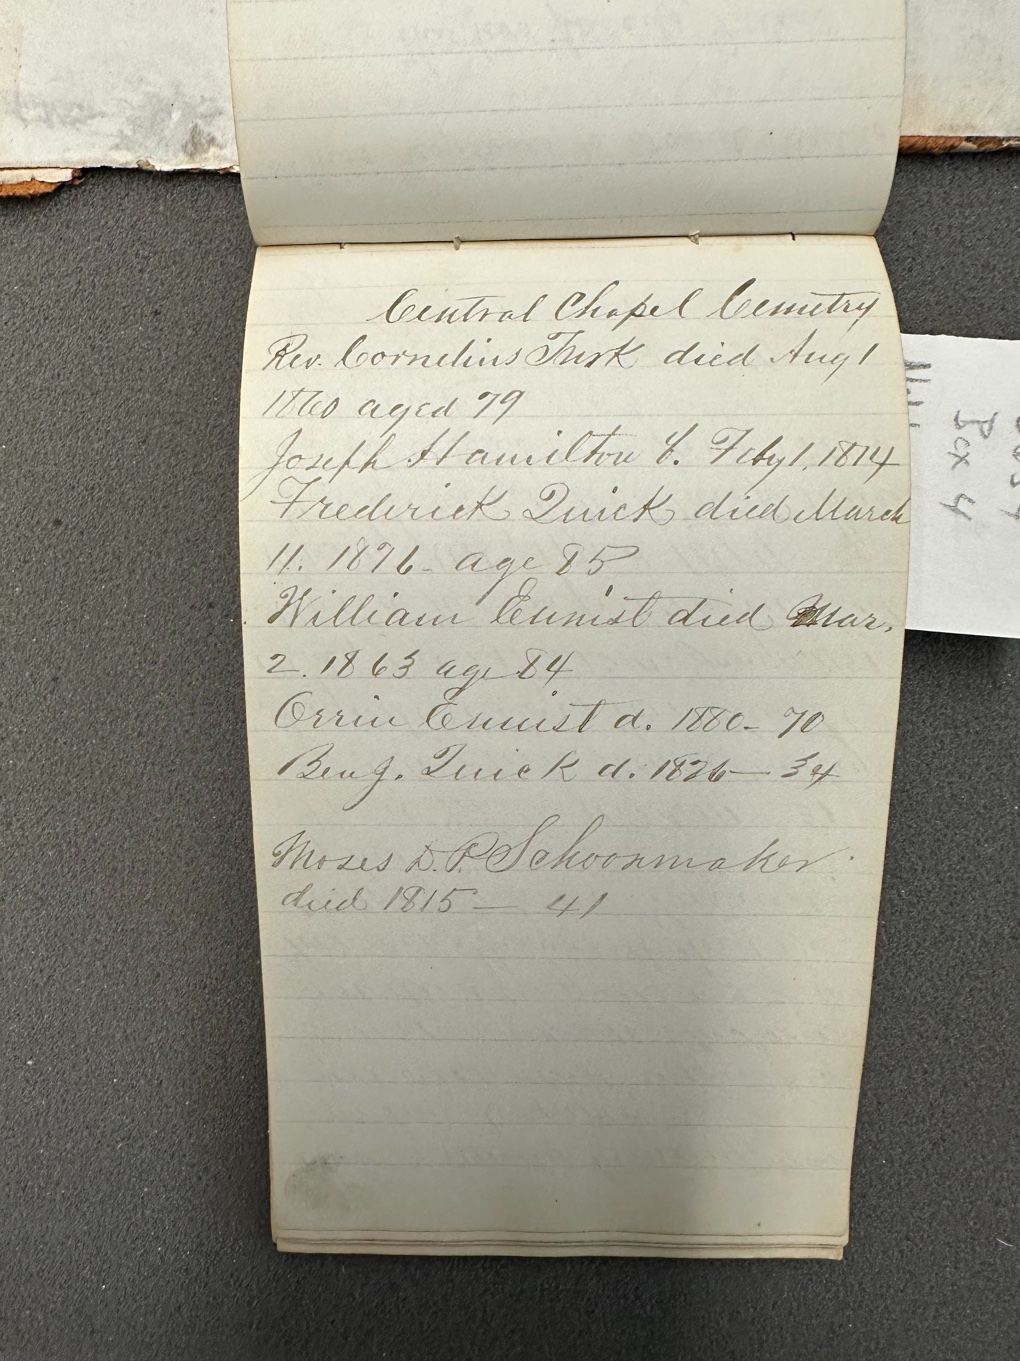 Central Chapel Cemetry
Rev. Cornelius Turk died Aug 1
1860 aged 79
Joseph Hamilton b. Feby 1, 1814
Frederick Quick died March
11. 1876- age 85
William Ennist died Mar.
2. 1863 age 84
Orrin Ennist d. 1880- 70
Benj. Quick d. 1826- 34
Moses D. P. Schoonmaker
died 1815- 41
Box 4